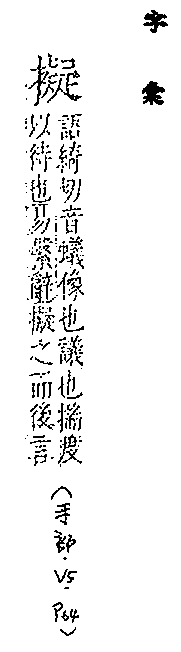 字彙
擬
語綺切音蟻像也議也揣度
以待也易繫辭擬之而後言
(手部·V5·P64)